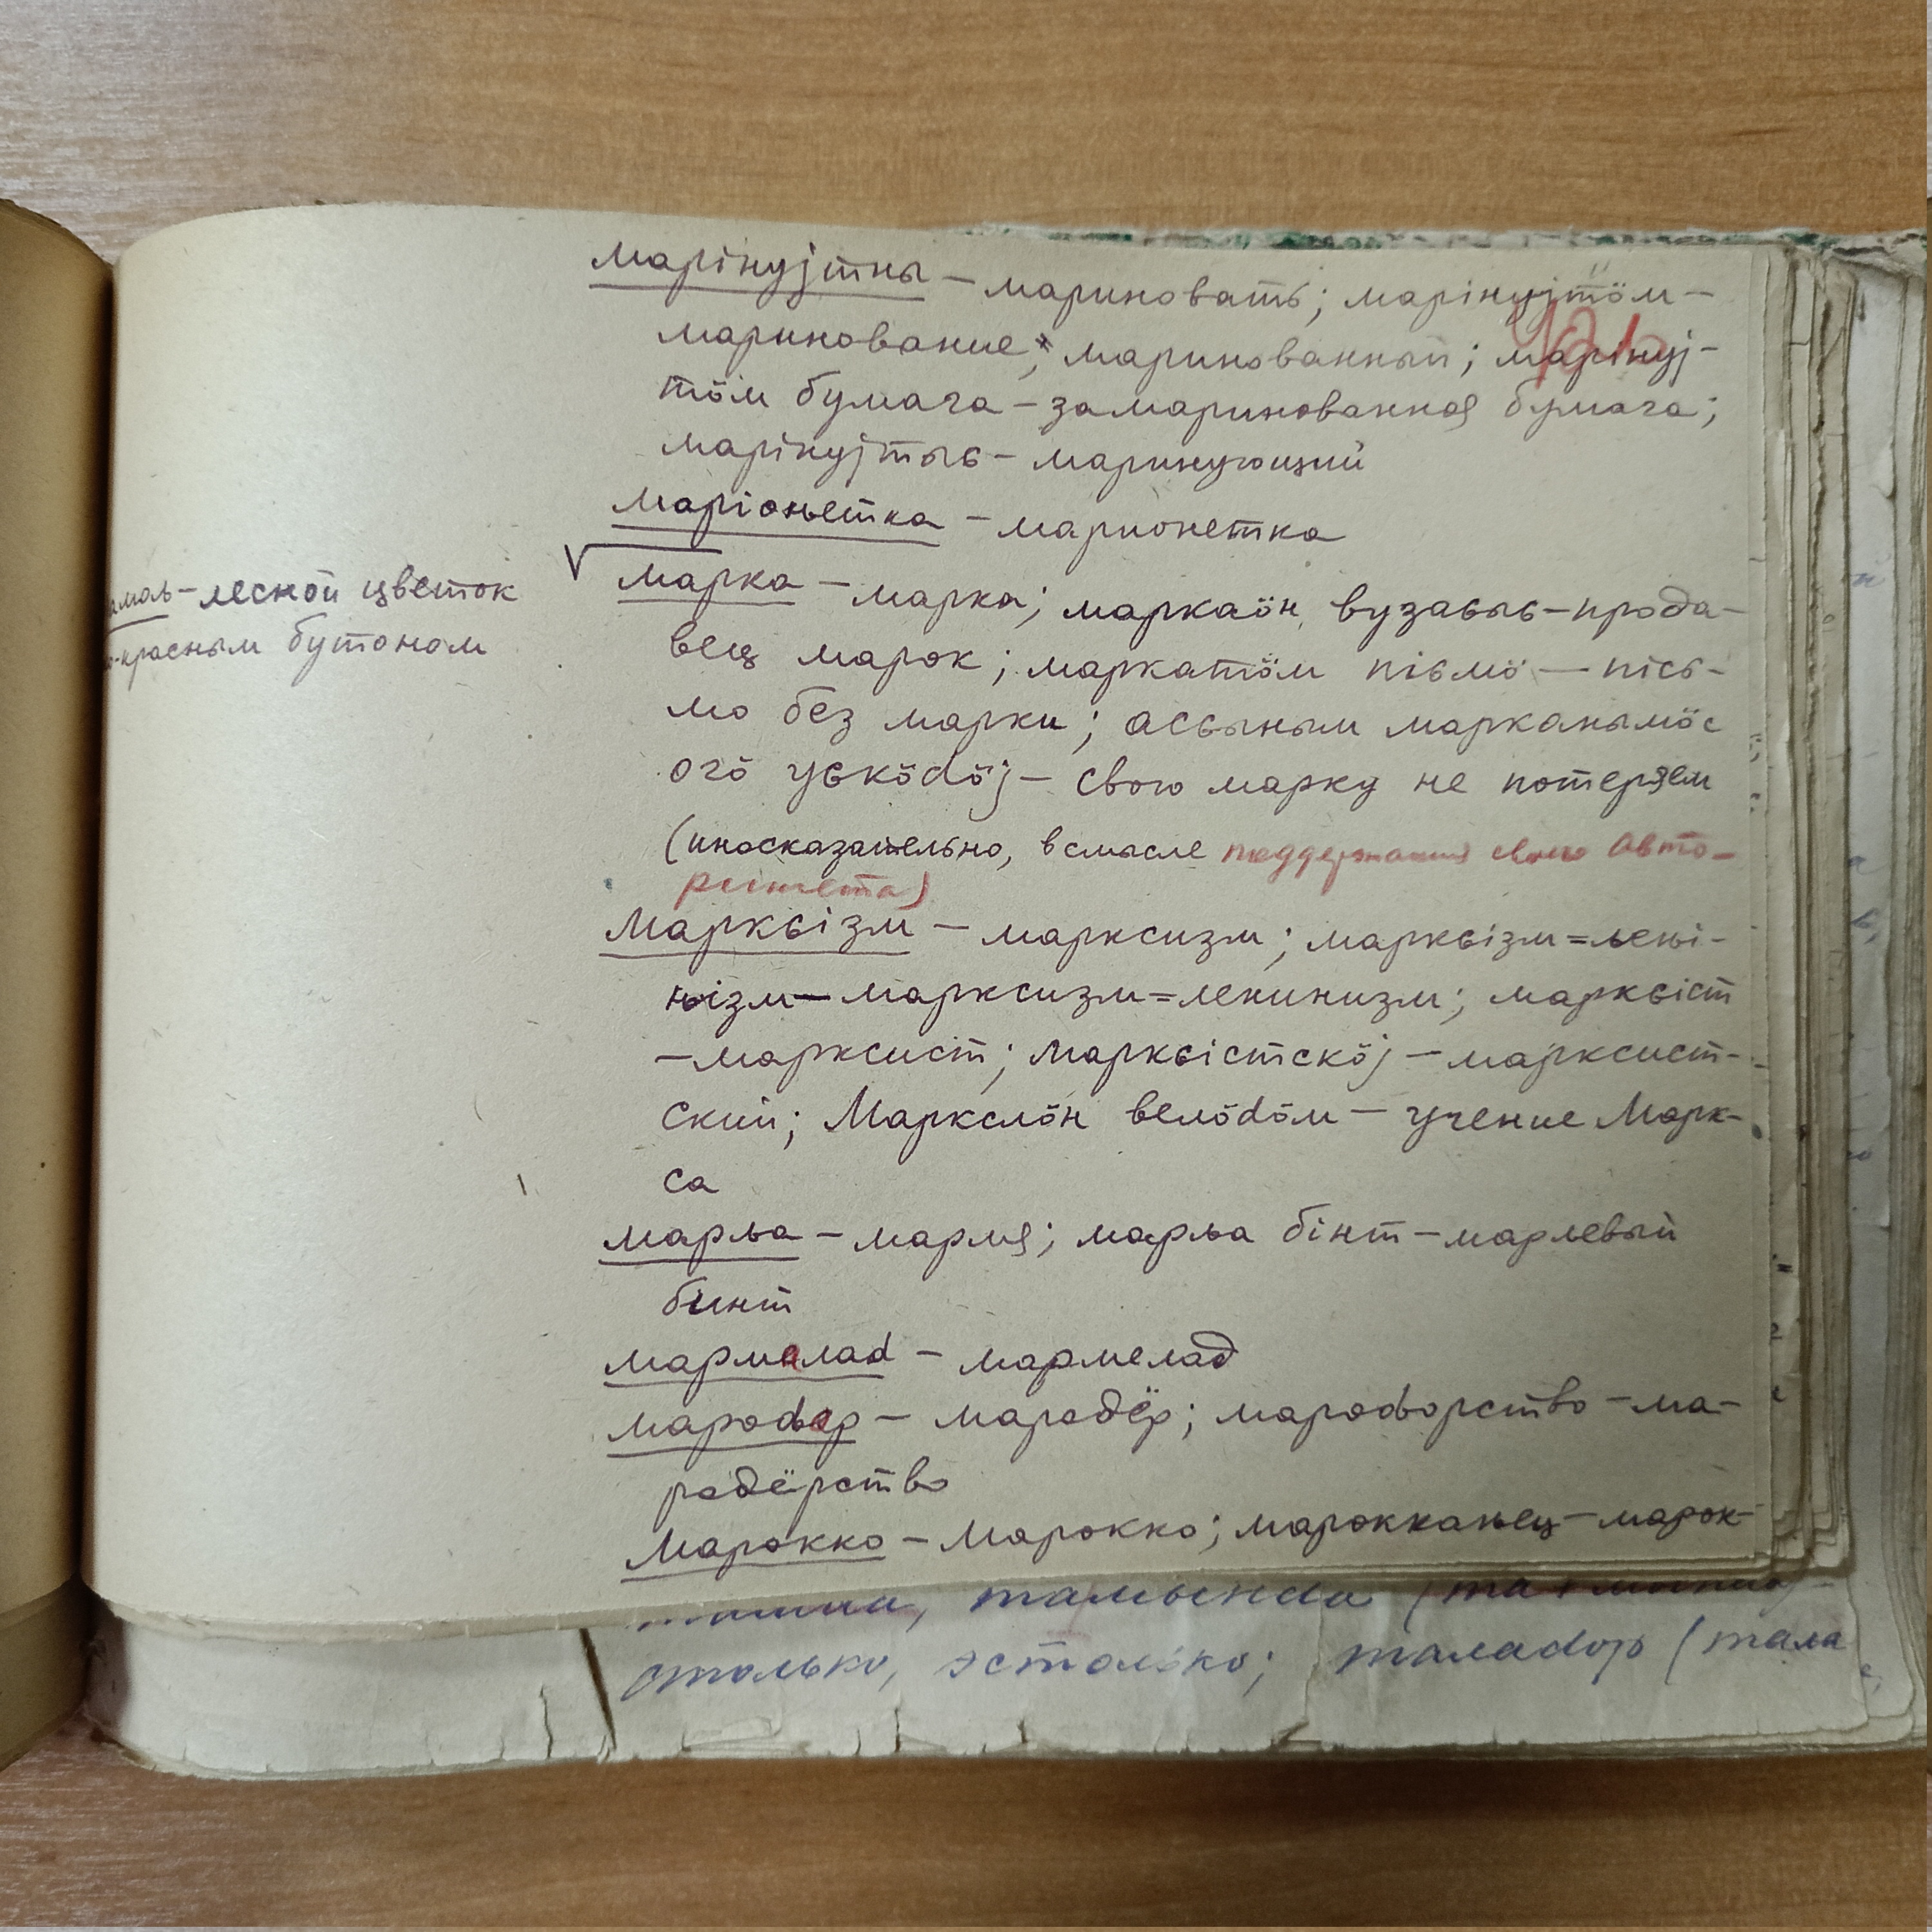 марінујтны – мариновать; марінујтӧм –
маринование; маринованный; марінуј-
тӧм бумага – замаринованная бумага;
марінујтыԍ – маринующий
маріоԋетка – марионетка
– лесной цветок
-красным бутоном
марка – марка; маркаӧн вузаԍыԍ – прода-
вец марок; маркатӧм піԍмӧ — піԍ-
мо без марки; асԍыным марканымӧс
огӧ уԍкӧԁӧј – свою марку не потеряем
(иносказательно, в смысле поддержания своего авто-
ритета)
Маркԍізм – марксизм; маркԍізм=ԉеԋі-
ԋізм – марксизм=ленинизм; маркԍіст
– марксист; маркԍістскӧј – марксист-
ский; Маркслӧн велӧԁӧм – учение Марк-
са
марԉа – марля; марԉа бінт – марлевый
бинт
мармелаԁ – мармелад
мароԃор – мародёр; мароԃорство – ма-
родёрство
Марокко – Марокко; мароккаԋец – марок-
столько, эстолько; талаԁор (тала